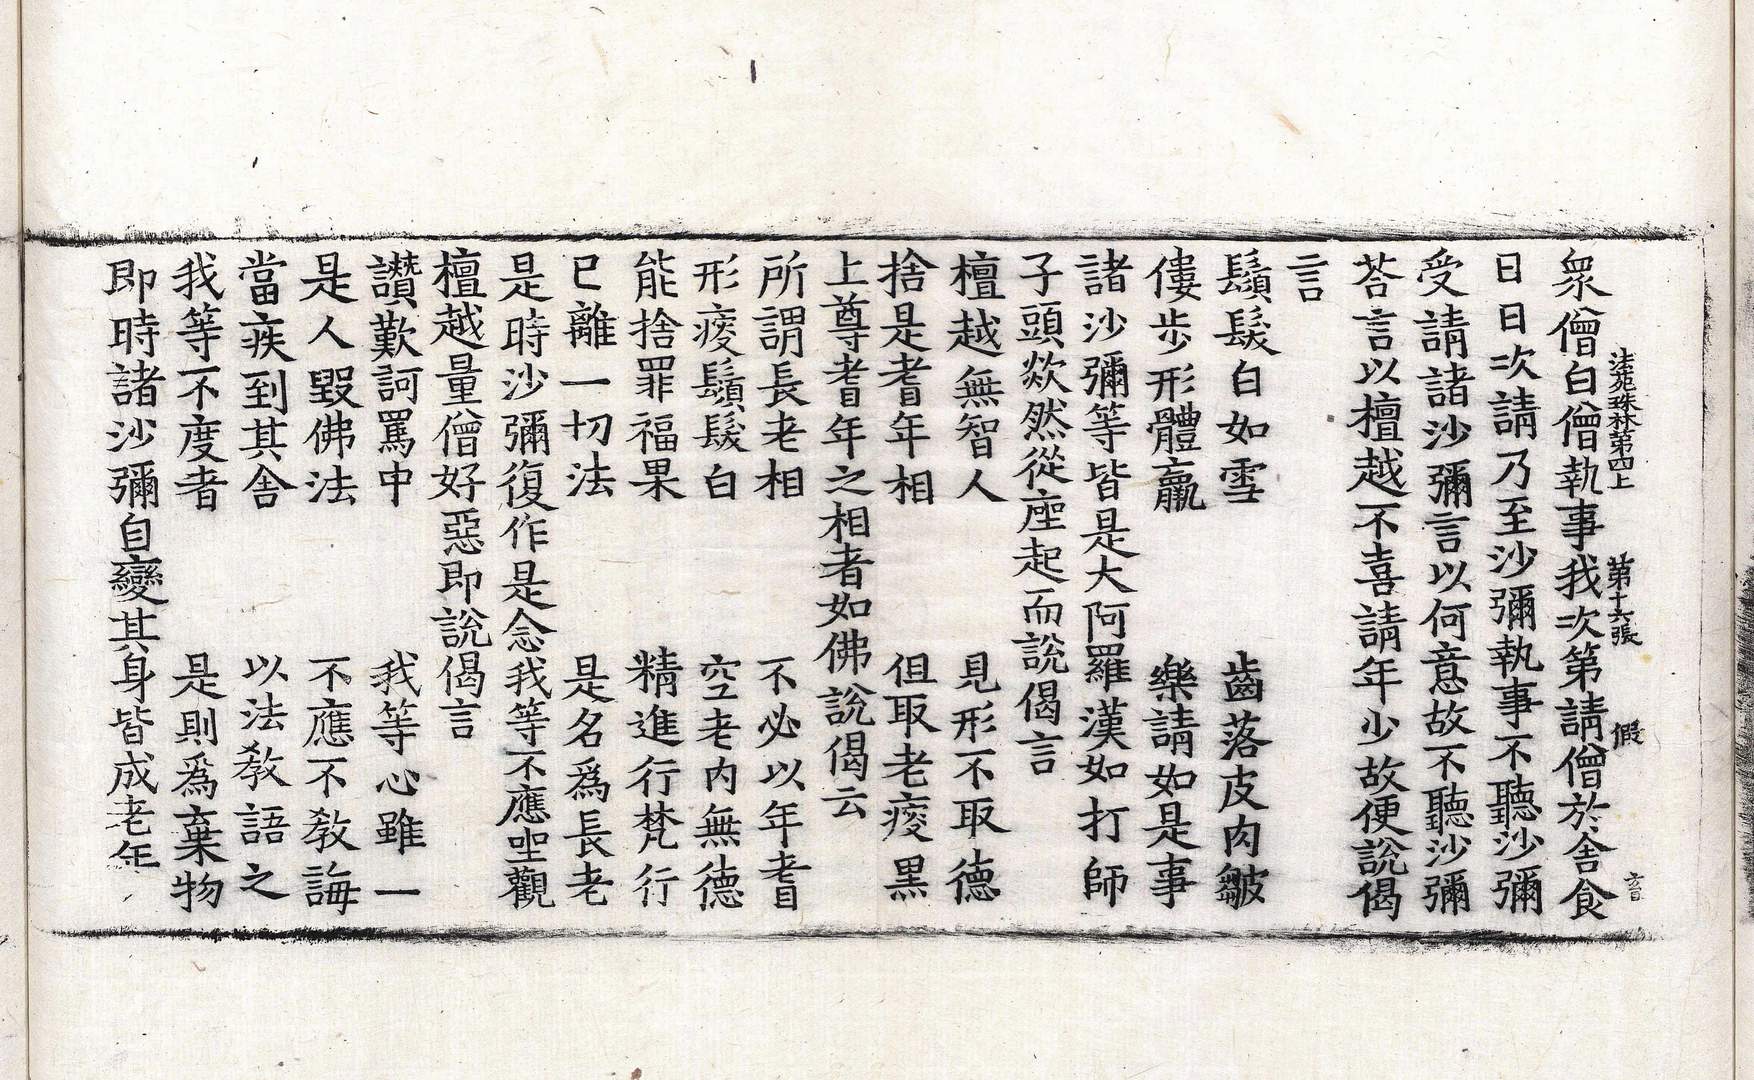 眾僧白僧執事我次第請僧於舍食
法苑珠林第四上 第十六張 假
日日次請乃至沙彌執事不聽沙彌
受請諸沙彌言以何意故不聽沙彌
荅言以檀越不喜請年少故便說偈
言
鬚髮白如雪 齒落皮肉皺
僂步形體羸 樂請如是事
諸沙彌等皆是大阿羅漢如打師
子頭欻然從座起而說偈言
檀越無智人 見形不取德
捨是耆年相 但取老瘦黑
上尊耆年之相者如佛說偈云
所謂長老相 不必以年耆
形瘦鬚髮白 空老內無德
能捨罪福果 精進行梵行
已離一切法 是名為長老
是時沙彌復作是念我等不應坐觀
檀越量僧好惡即說偈言
讚歎訶罵中 我等心雖一
是人毀佛法 不應不教誨
當疾到其舍 以法教語之
我等不度者 是則為棄物
即時諸沙彌自變其身皆成老年